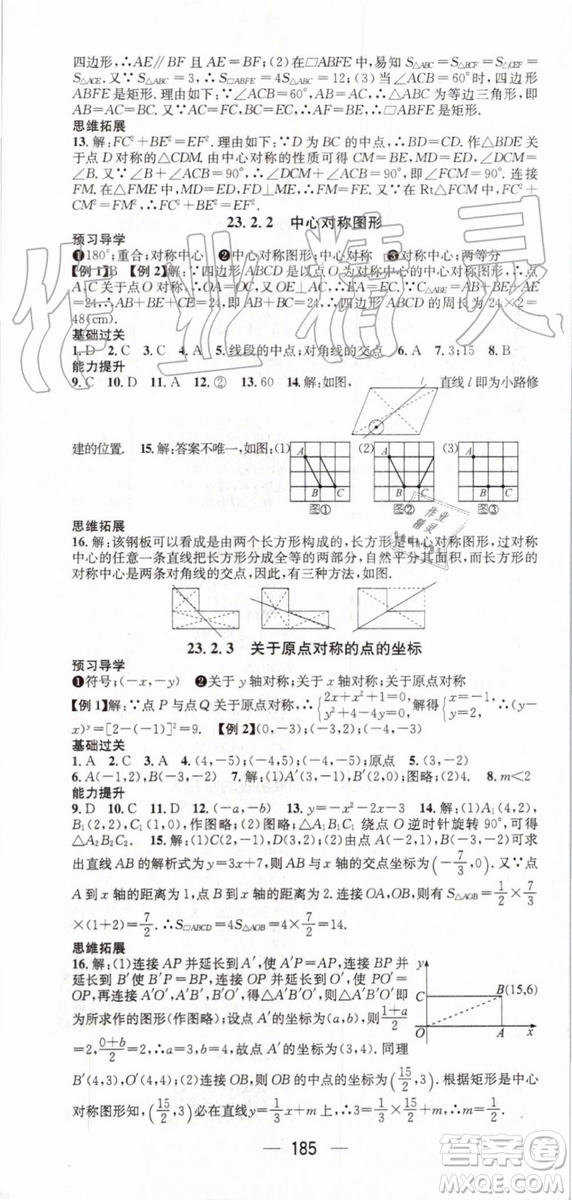 四边形,∴AE∥BF 且 AE=BF;(2)在□ABFE 中,易知 S△ABC=S△BCF=S△CEF=
S△ACE,又∵S△ABC=3,∴S□ABFE=4S△ABC=12;(3)当∠ACB=60°时,四边形
ABFE 是矩形.理由如下:∵∠ACB=60°,AB=AC,∴△ABC 为等边三角形,即
AB=AC=BC.又∵AC=CF,BC=CE,∴AF=BE,∴四边形 ABFE 是矩形.
思维拓展
13.解:FC²+BE²=EF².理由如下,∵D 为 BC 的中点,∴BD=CD.作△BDE 关
于点 D 对称的△CDM.由中心对称的性质可得 CM=BE,MD=ED,∠DCM=
∠B.又∵∠B+∠ACB=90°,∴∠DCM+∠ACB=90°,即∠FCM=90°.连接
FM,在△FME 中,MD=ED,FD⊥ME,∴FM=FE.又∵在 Rt△FCM 中,FC²
+CM²=FM²,∴FC²+BE²=EF².
23.2.2 中心对称图形
预习导学
❶180°;重合;对称中心 ❷中心对称图形;中心对称 ❸对称中心;两等分
【例 1】B 【例 2】解:∵四边形 ABCD 是以点 O 为对称中心的中心对称图形,∴点
A,C 关于点 O 对称,∴OA=OC,又∵OE⊥AC,∴EA=EC.∵C△ABE=AB+BE+AE
=24,∴AB+BE+CE=24,即 AB+BC=24,∴四边形 ABCD 的周长为 24×2=
48(cm).
基础过关
1.D 2.C 3.C 4.A 5.线段的中点;对角线的交点 6.A 7.3;15 8.B
能力提升
9.C 10.D 11.A 12.② 13.60 14.解:如图, l 直线 l 即为小路修
建的位置. 15.解:答案不唯一,如图:(1) A B C 图① (2) A B C 图② (3) A B C 图③
思维拓展
16.解:该钢板可以看成是由两个长方形构成的,长方形是中心对称图形,过对称
中心的任意一条直线把长方形分成全等的两部分,自然平分其面积,而长方形的
对称中心是两条对角线的交点,因此,有三种方法,如图.
23.2.3 关于原点对称的点的坐标
预习导学
❶符号;(-x,-y) ❷关于 y 轴对称;关于 x 轴对称;关于原点对称
【例 1】解:∵点 P 与点 Q 关于原点对称,∴{2x+x²+1=0, y²+2-3=0, 解得{x=-1, y=±1. ∴(2-
x)ʸ=[2-(-1)]²=9.【例 2】(0,-4)
基础过关
1.A 2.C 3.A 4.(4,-5);(-4,5);(-4,-5);原点 5.(3,-2)
6.A(-1,2),B(-3,-2) 7.解:(1)A′(3,-1),B′(0,2),图略;(2)4. 8.m<2
能力提升
9.D 10.A 11.D 12.(-a,-b) 13.y=-x²-2x-3 14.解:(1)A₁(4,5),
B₁(2,2),C₁(1,0),作图略;(2)△A₁B₁C₁ 绕点 O 逆时针旋转 90°,可得
△A₂B₂C₂. 15.解:∵点 C 与点 A 关于原点 O 对称,∴A(-2,1).∵B(2,2),可求
出直线 AB 的解析式为 y=3x+7,所以直线 AB 与 x 轴的交点坐标为(-7/3,0).点
A 到 x 轴的距离为 1,点 B 到 x 轴的距离为 2.连接 OA,OB,则有 S△AOB=1/2×7/3
×(1+2)=7/2.∴S□ABCD=4S△AOB=4×7/2=14.
思维拓展
16.解:(1)连接 AP 并延长到 A′,使 AP=A′P,连接 BP 并
延长到 B′,使 B′P=BP,连接 OP 并延长到 O′,使 PO′=
OP,再连接 A′O′,A′B′,B′O′,得△A′B′O′,则△A′B′O′即
为所求作的图形(作图略);设点 A′的坐标为(a,b),则(1+a)/2
=2,(0+b)/2=2,∴a=3,b=4,故点 A′的坐标为(3,4).同理
y C B(15,6) O A x
B′(4,3),O′(4,4);(2)∵OB 的中点坐标为(15/2,3),根据矩形是中心
对称图形知,(15/2,3)必在直线 y=1/3x+m 上,∴3=1/3×15/2+m,∴m=1/2.
185
作业精灵
作业
精灵
答案圈
MXQE.COM